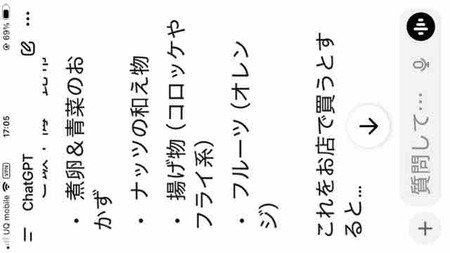 UQ mobile VPN 17:05 69%
ChatGPT
・煮卵&青菜のお
かず
・ナッツの和え物
・揚げ物（コロッケや
フライ系）
・フルーツ（オレン
ジ）
これをお店で買うとす
ると…
質問して…